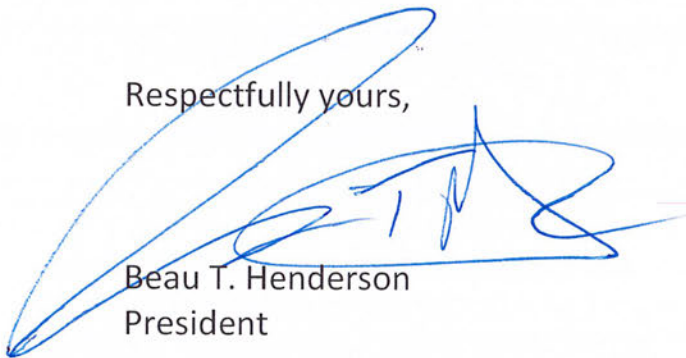 Respectfully yours,
Beau T. Henderson
President